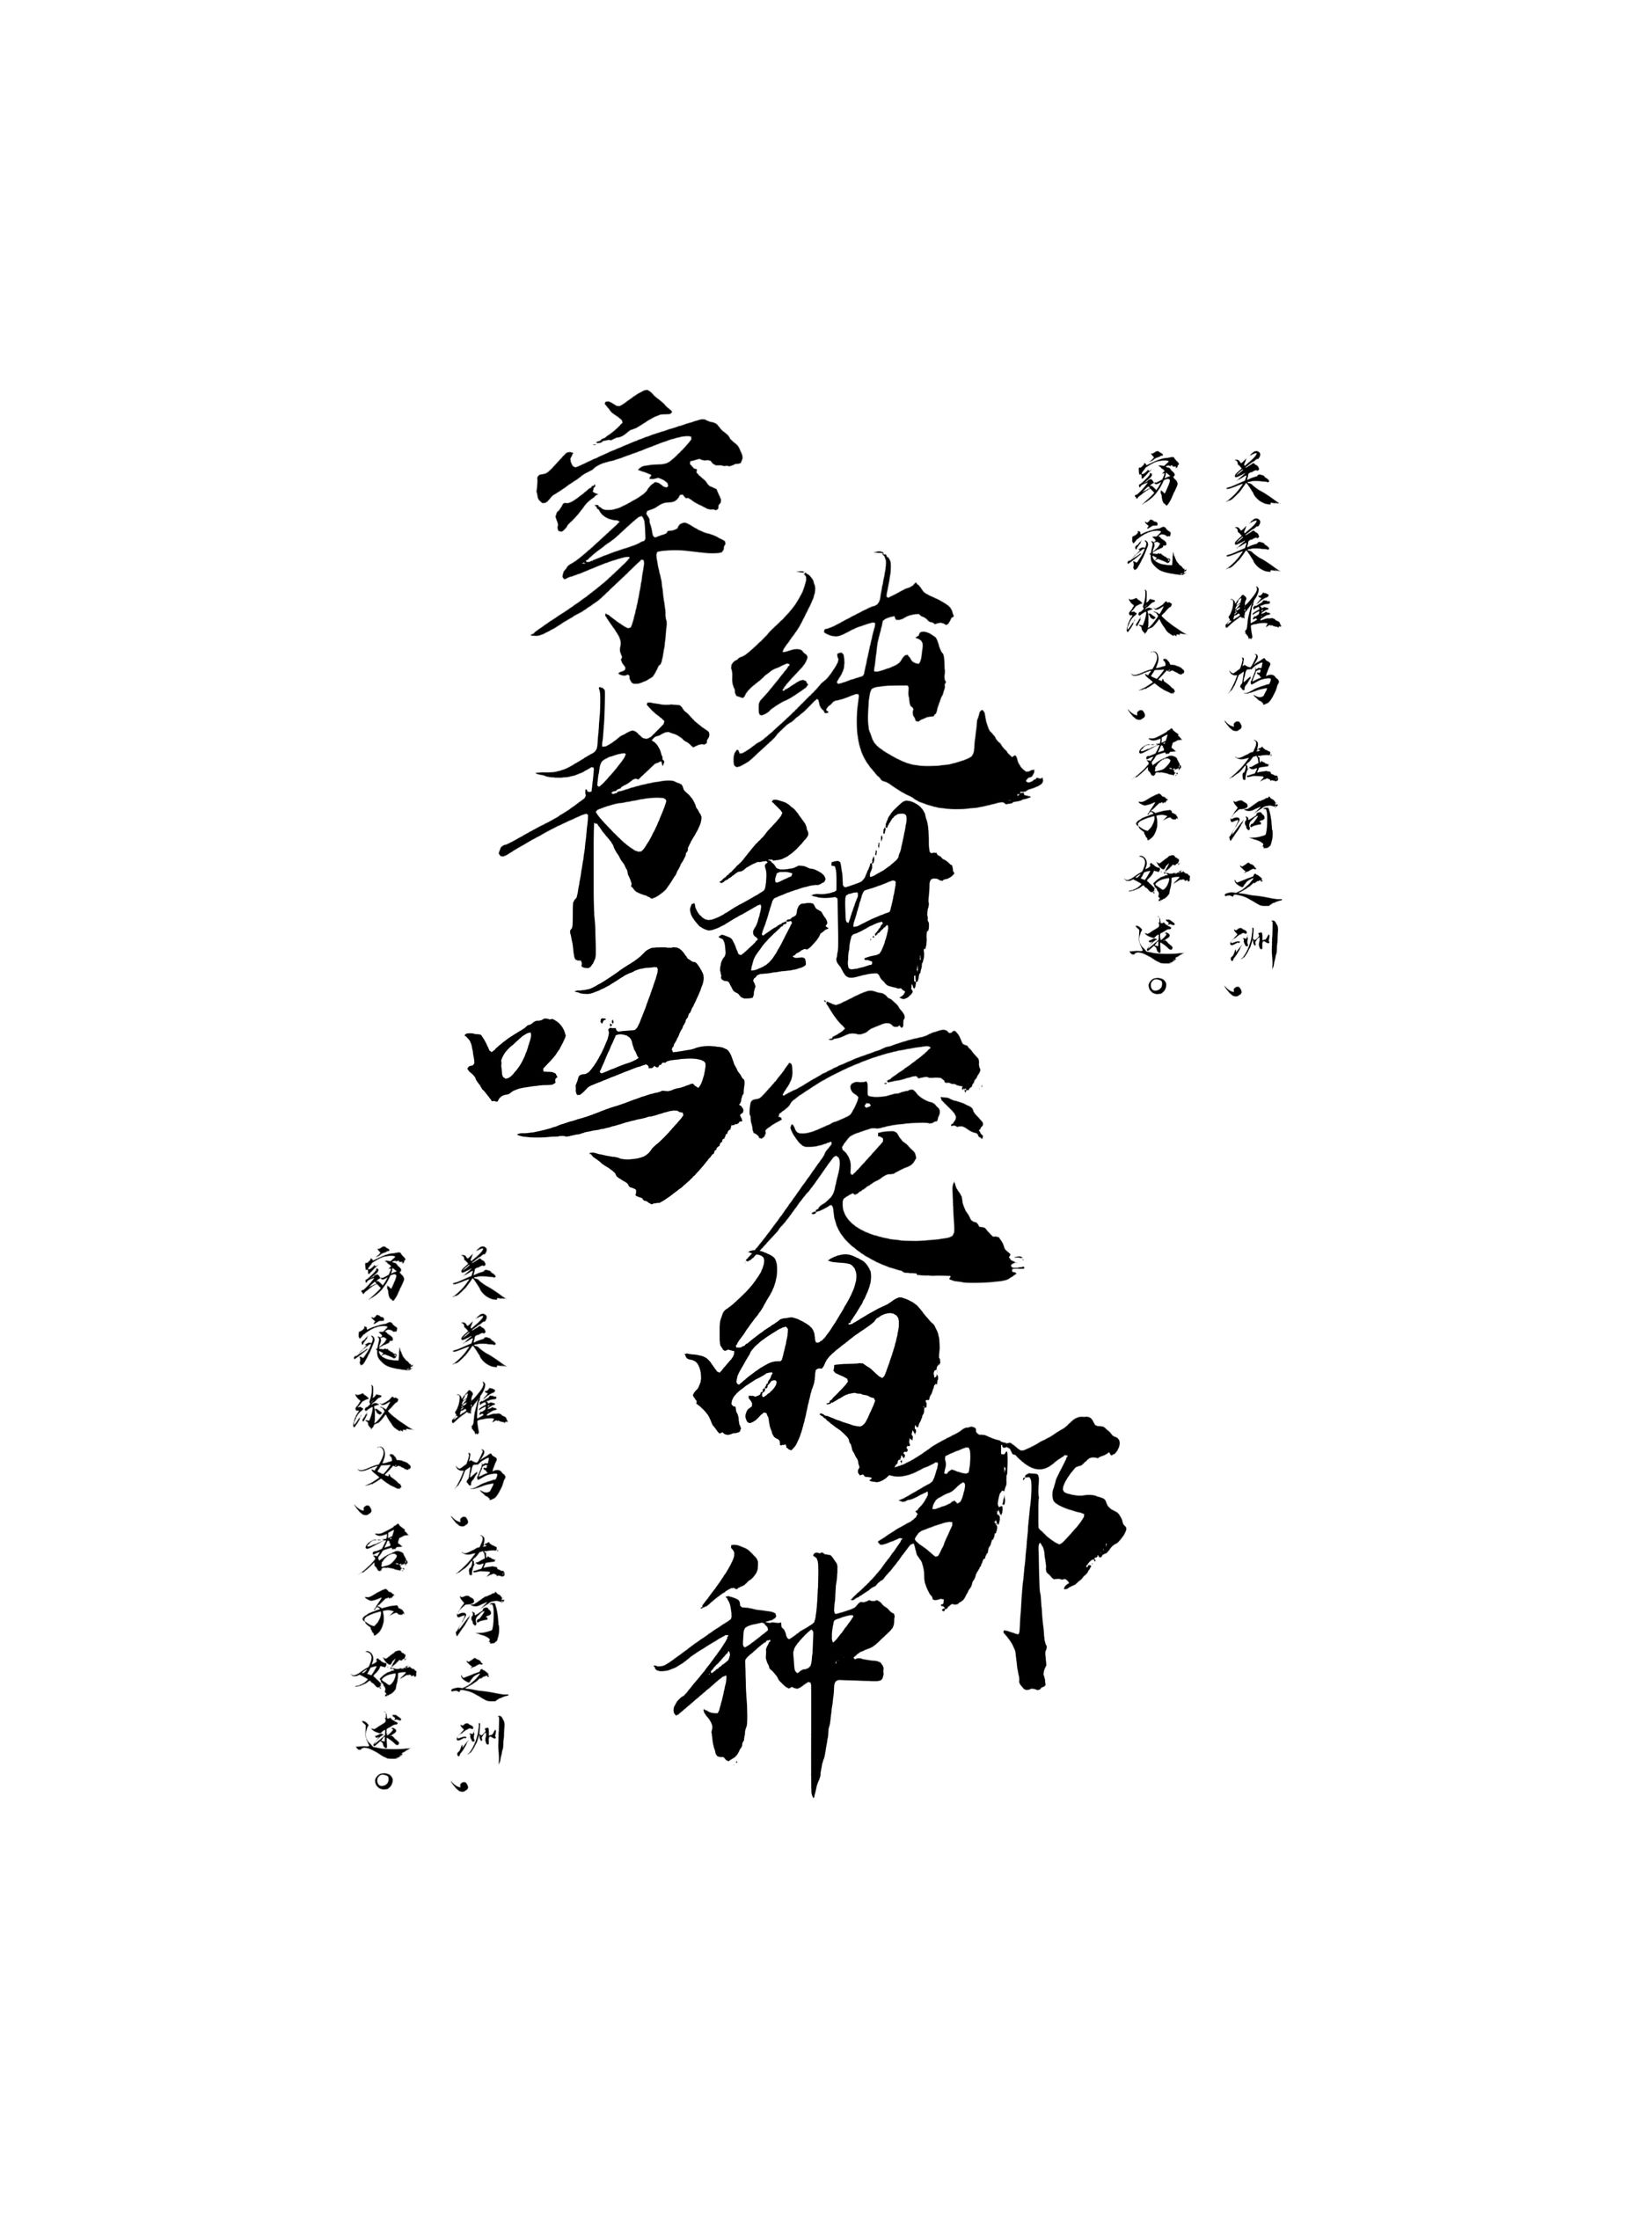 穿书吗
纯甜宠的
那种
关关雎鸠，在河之洲，
窈窕淑女，君子好逑。
关关雎鸠，在河之洲，
窈窕淑女，君子好逑。